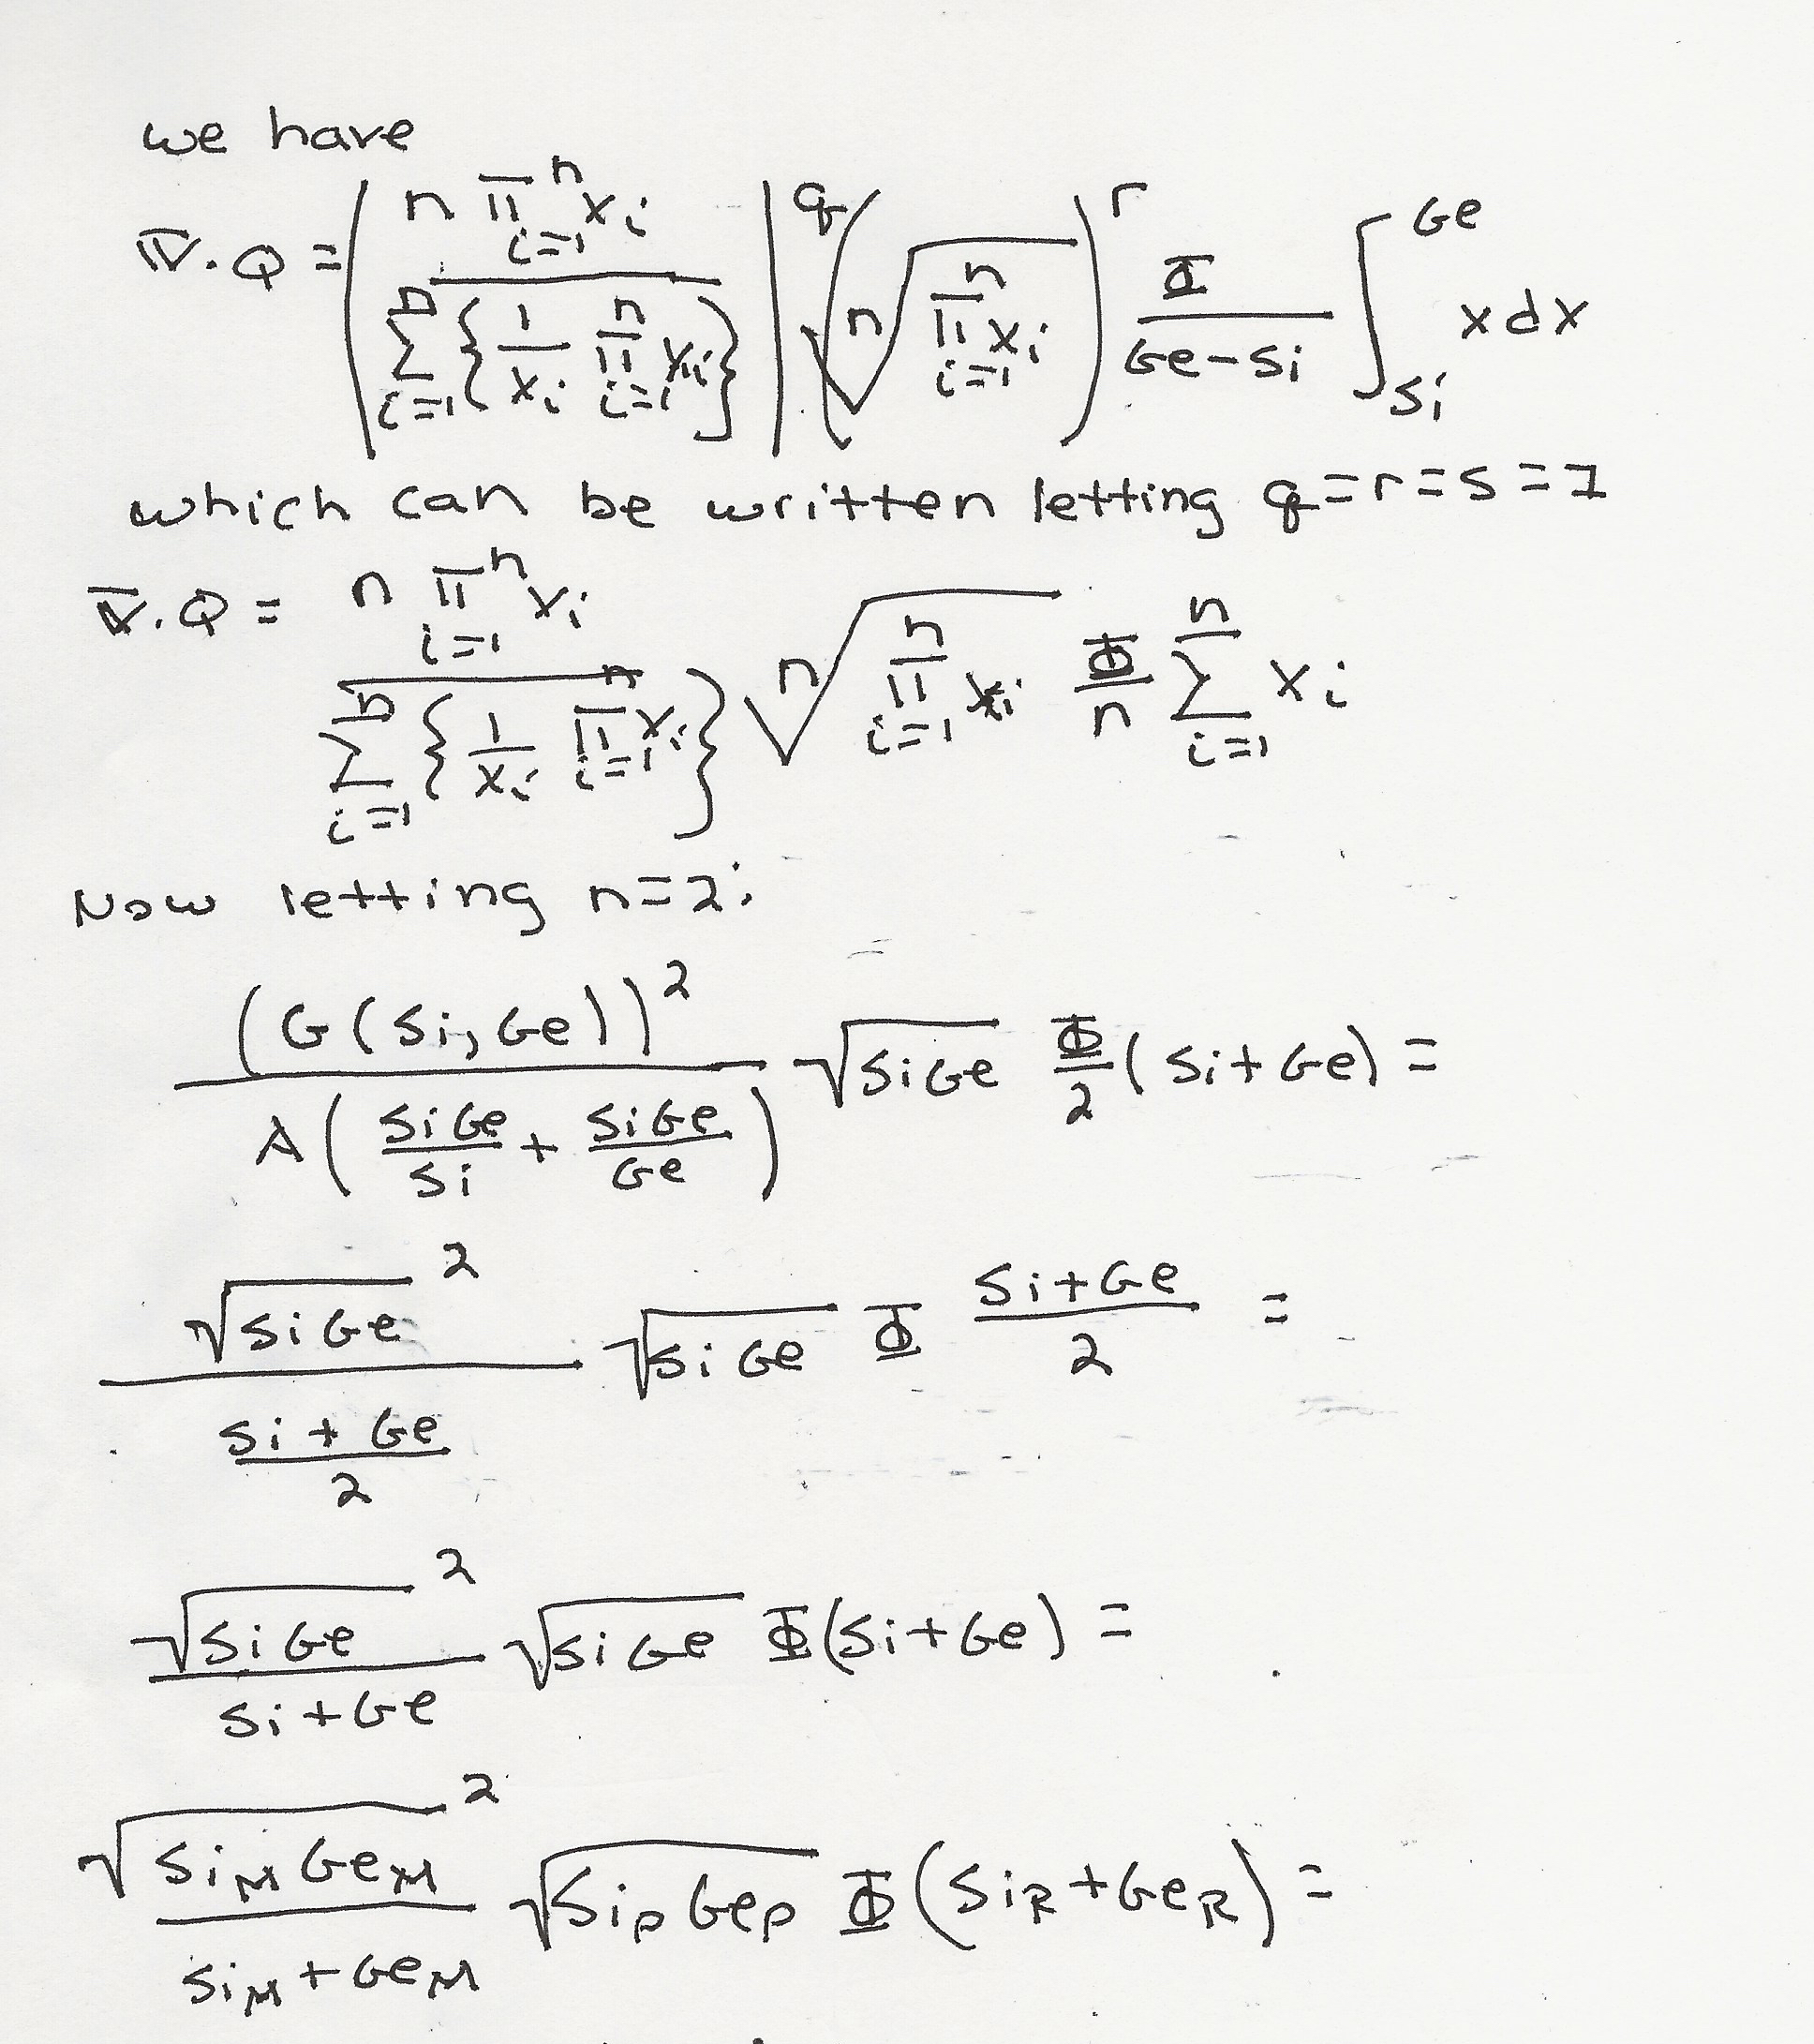 we have
∇·Q = | n ∏_{i=1}^{n} x_i / Σ_{i=1}^{n} { 1/x_i ∏_{i=1}^{n} x_i } |^q ( ⁿ√( ∏_{i=1}^{n} x_i ) )^r Φ/(Ge-Si) ∫_{Si}^{Ge} x dx
which can be written letting q=r=s=1
∇·Q = n ∏_{i=1}^{n} x_i / Σ_{i=1}^{n} { 1/x_i ∏_{i=1}^{n} x_i } ⁿ√( ∏_{i=1}^{n} x_i ) Φ/n Σ_{i=1}^{n} x_i
Now letting n=2:
(G(Si,Ge))² / A( SiGe/Si + SiGe/Ge ) √(SiGe) Φ/2 (Si+Ge) =
√(SiGe)² / ((Si+Ge)/2) √(SiGe) Φ (Si+Ge)/2 =
√(SiGe)² / (Si+Ge) √(SiGe) Φ(Si+Ge) =
√(Si_M Ge_M)² / (Si_M+Ge_M) √(Si_P Ge_P) Φ(Si_R+Ge_R) =